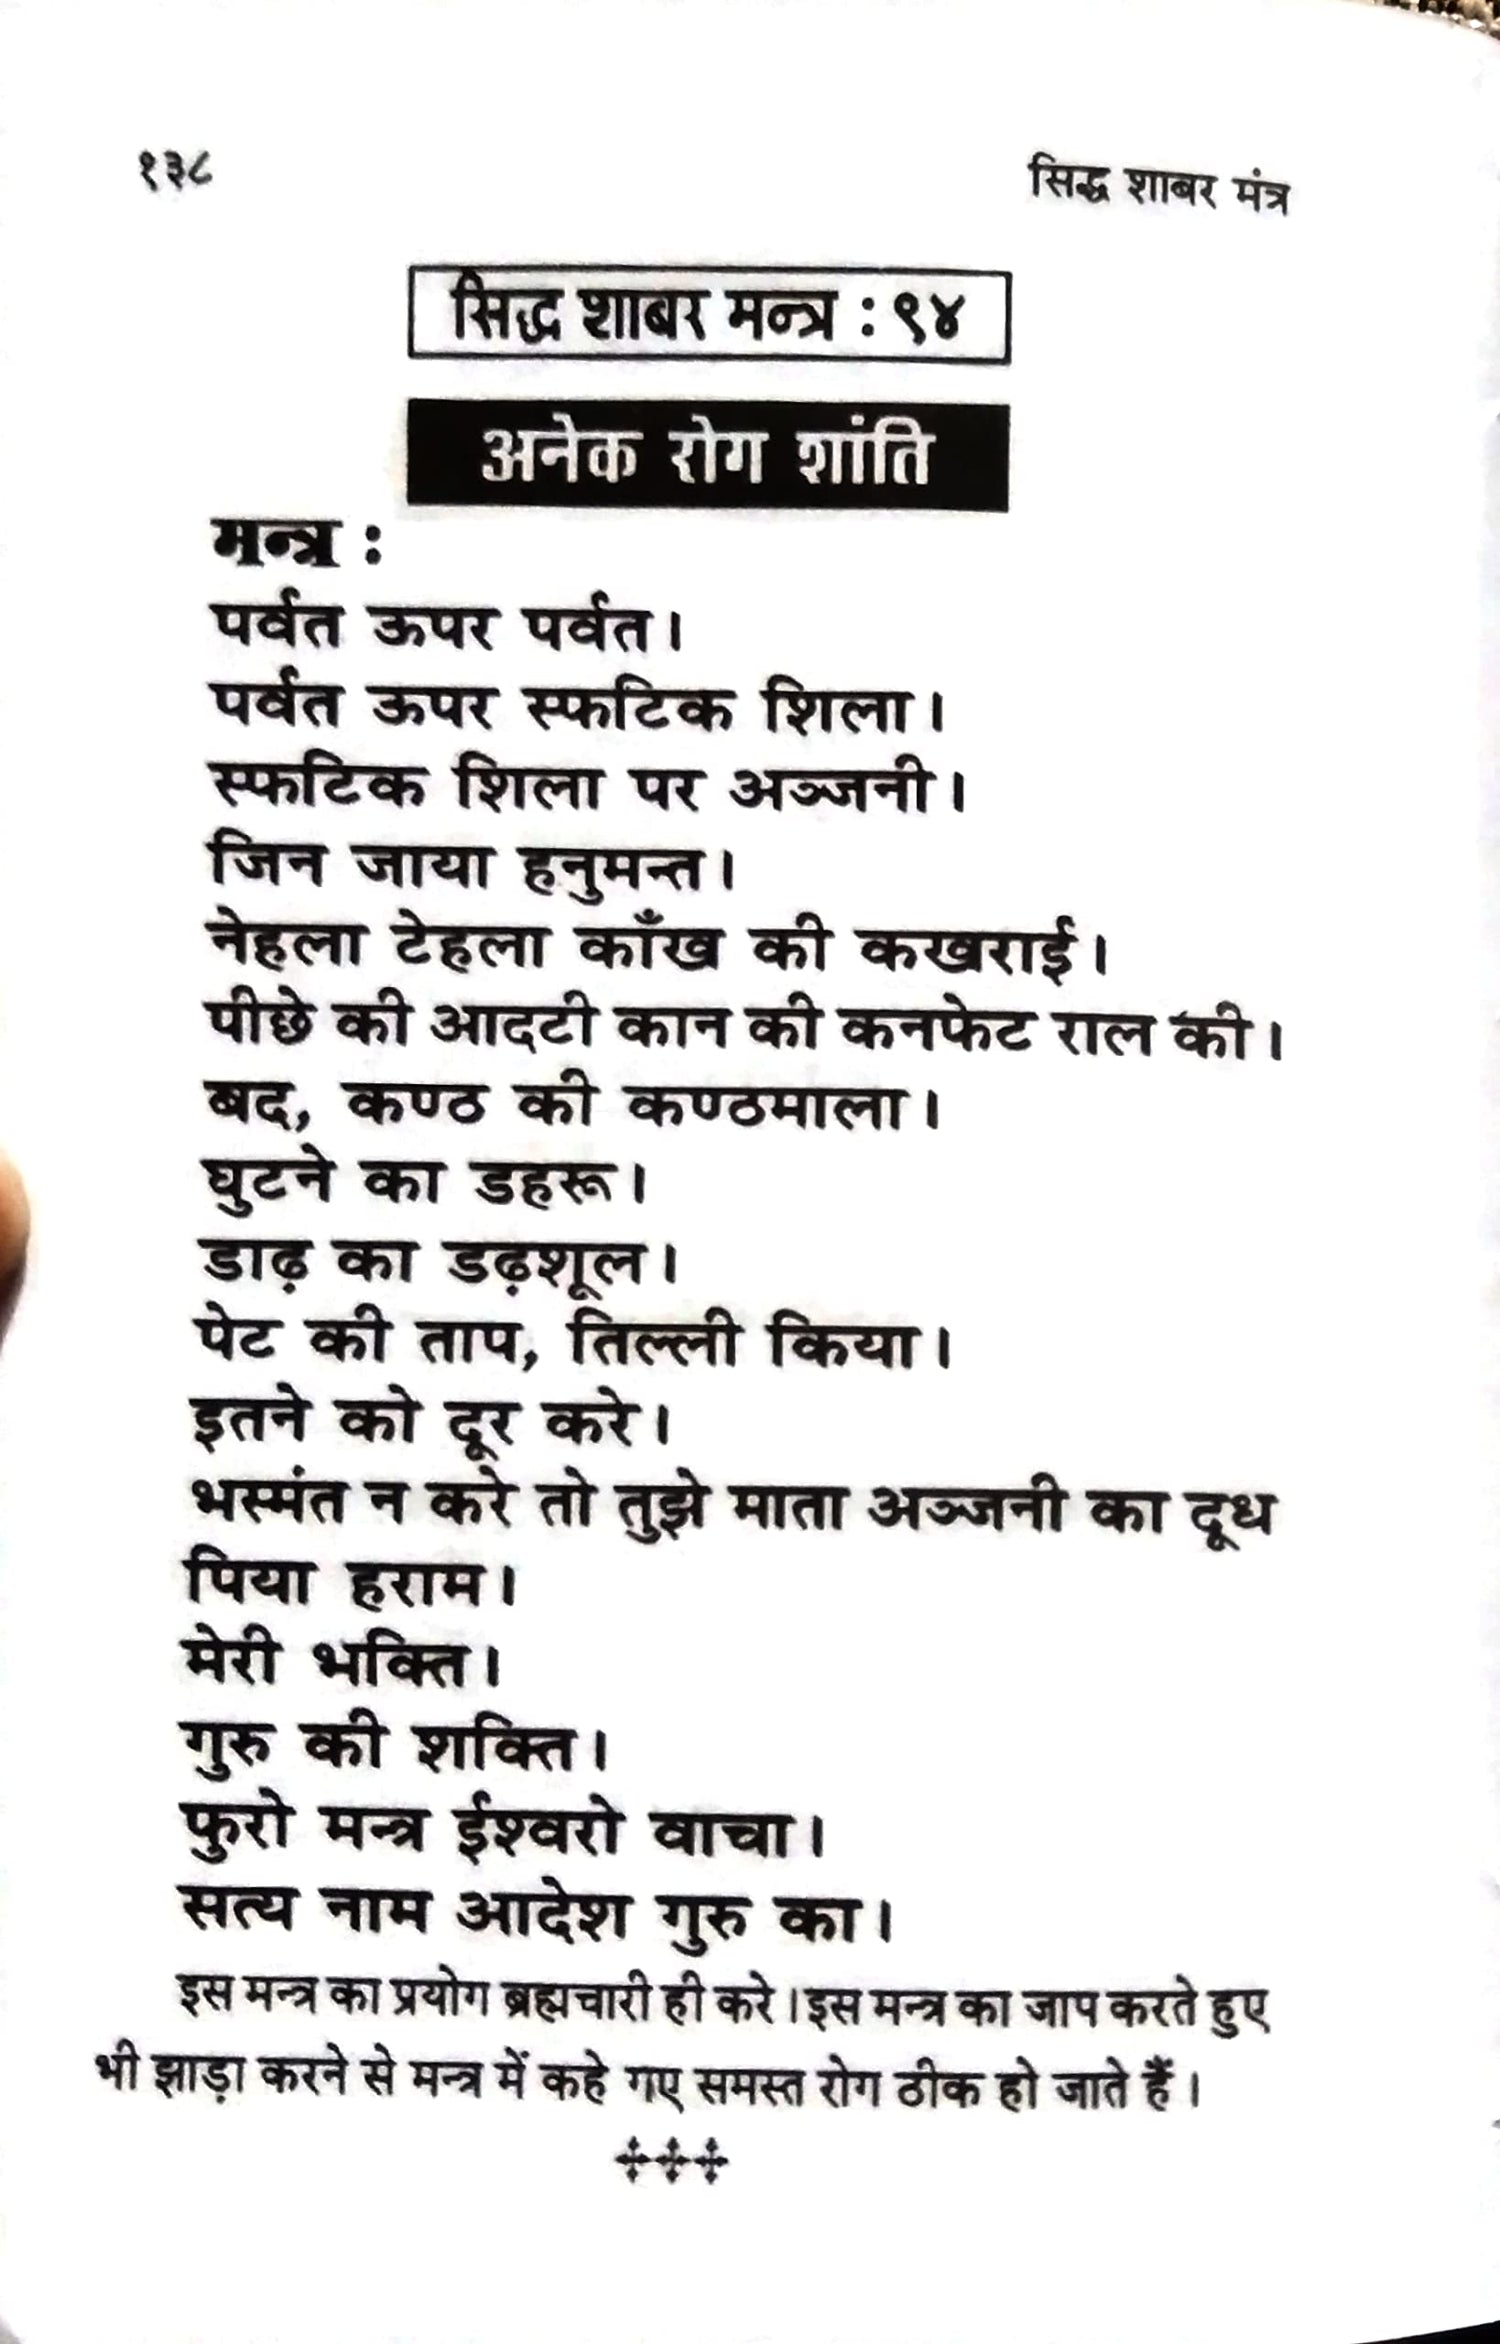 १३८
सिद्ध शाबर मंत्र
सिद्ध शाबर मन्त्र : ९४
अनेक रोग शांति
मन्त्र :
पर्वत ऊपर पर्वत।
पर्वत ऊपर स्फटिक शिला।
स्फटिक शिला पर अञ्जनी।
जिन जाया हनुमन्त।
नेहला टेहला काँख की कखराई।
पीछे की आदटी कान की कनफेट राल की।
बद, कण्ठ की कण्ठमाला।
घुटने का डहरू।
डाढ़ का डढ़शूल।
पेट की ताप, तिल्ली किया।
इतने को दूर करे।
भस्मंत न करे तो तुझे माता अञ्जनी का दूध
पिया हराम।
मेरी भक्ति।
गुरु की शक्ति।
फुरो मन्त्र ईश्वरो वाचा।
सत्य नाम आदेश गुरु का।
इस मन्त्र का प्रयोग ब्रह्मचारी ही करे। इस मन्त्र का जाप करते हुए
भी झाड़ा करने से मन्त्र में कहे गए समस्त रोग ठीक हो जाते हैं।